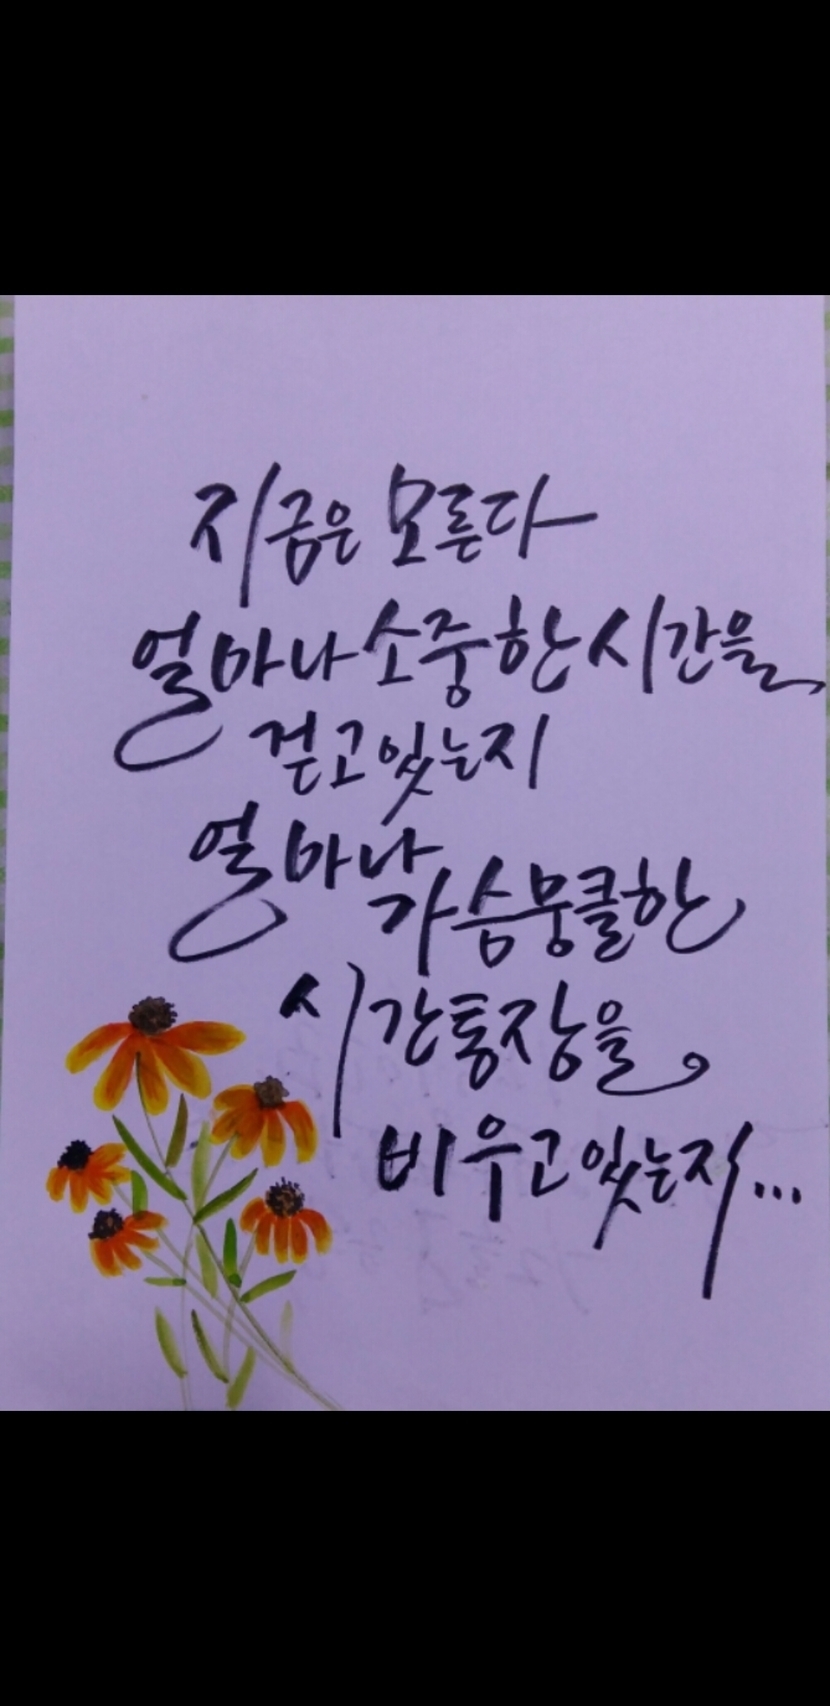 지금은 모른다
얼마나 소중한 시간을
걷고 있는지
얼마나
가슴뭉클한
시간통장을
비우고 있는지...